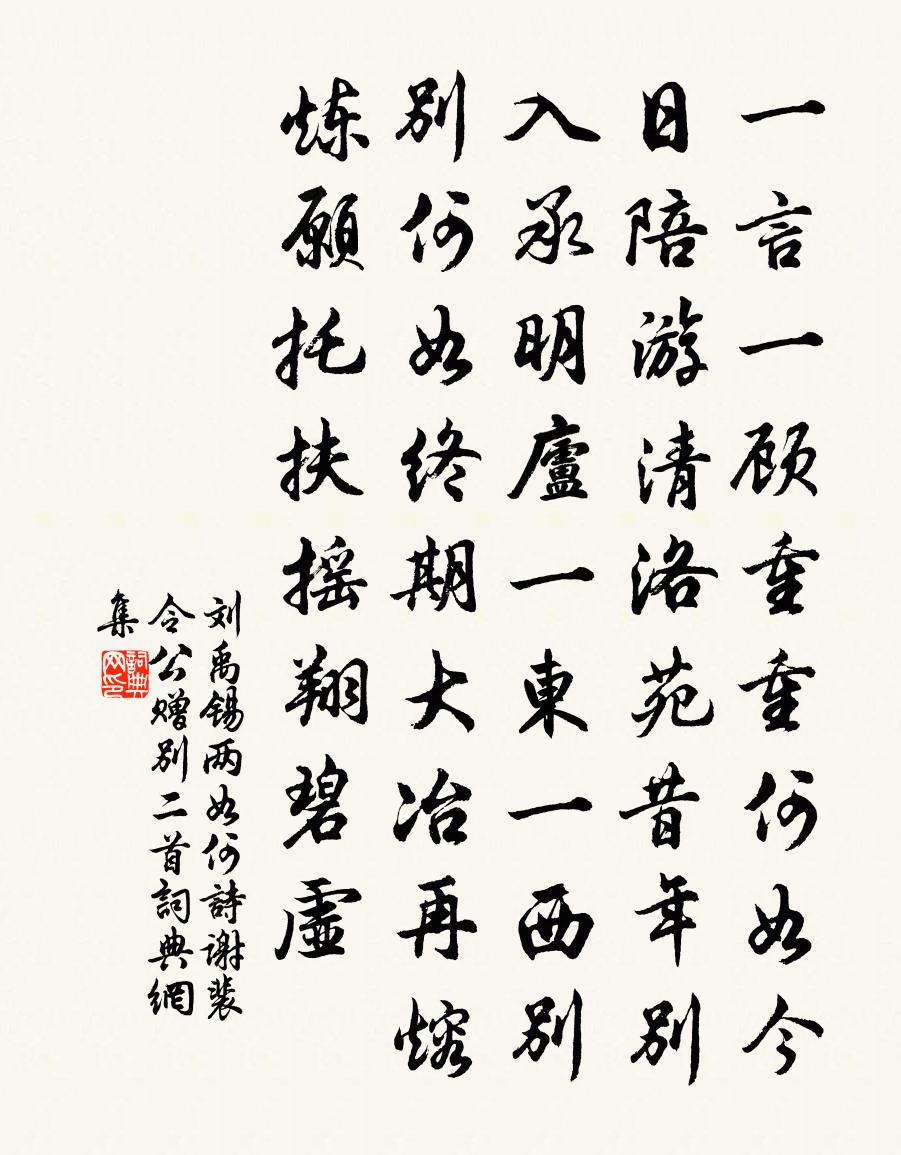 一言一顾重重何如今
日陪游清洛苑昔年别
入承明廬一東一西别
别何如终期大冶再熔
炼愿托扶摇翔碧虚
刘禹锡两如何詩谢裴
令公赠别二首詞典網
集
詞典网印